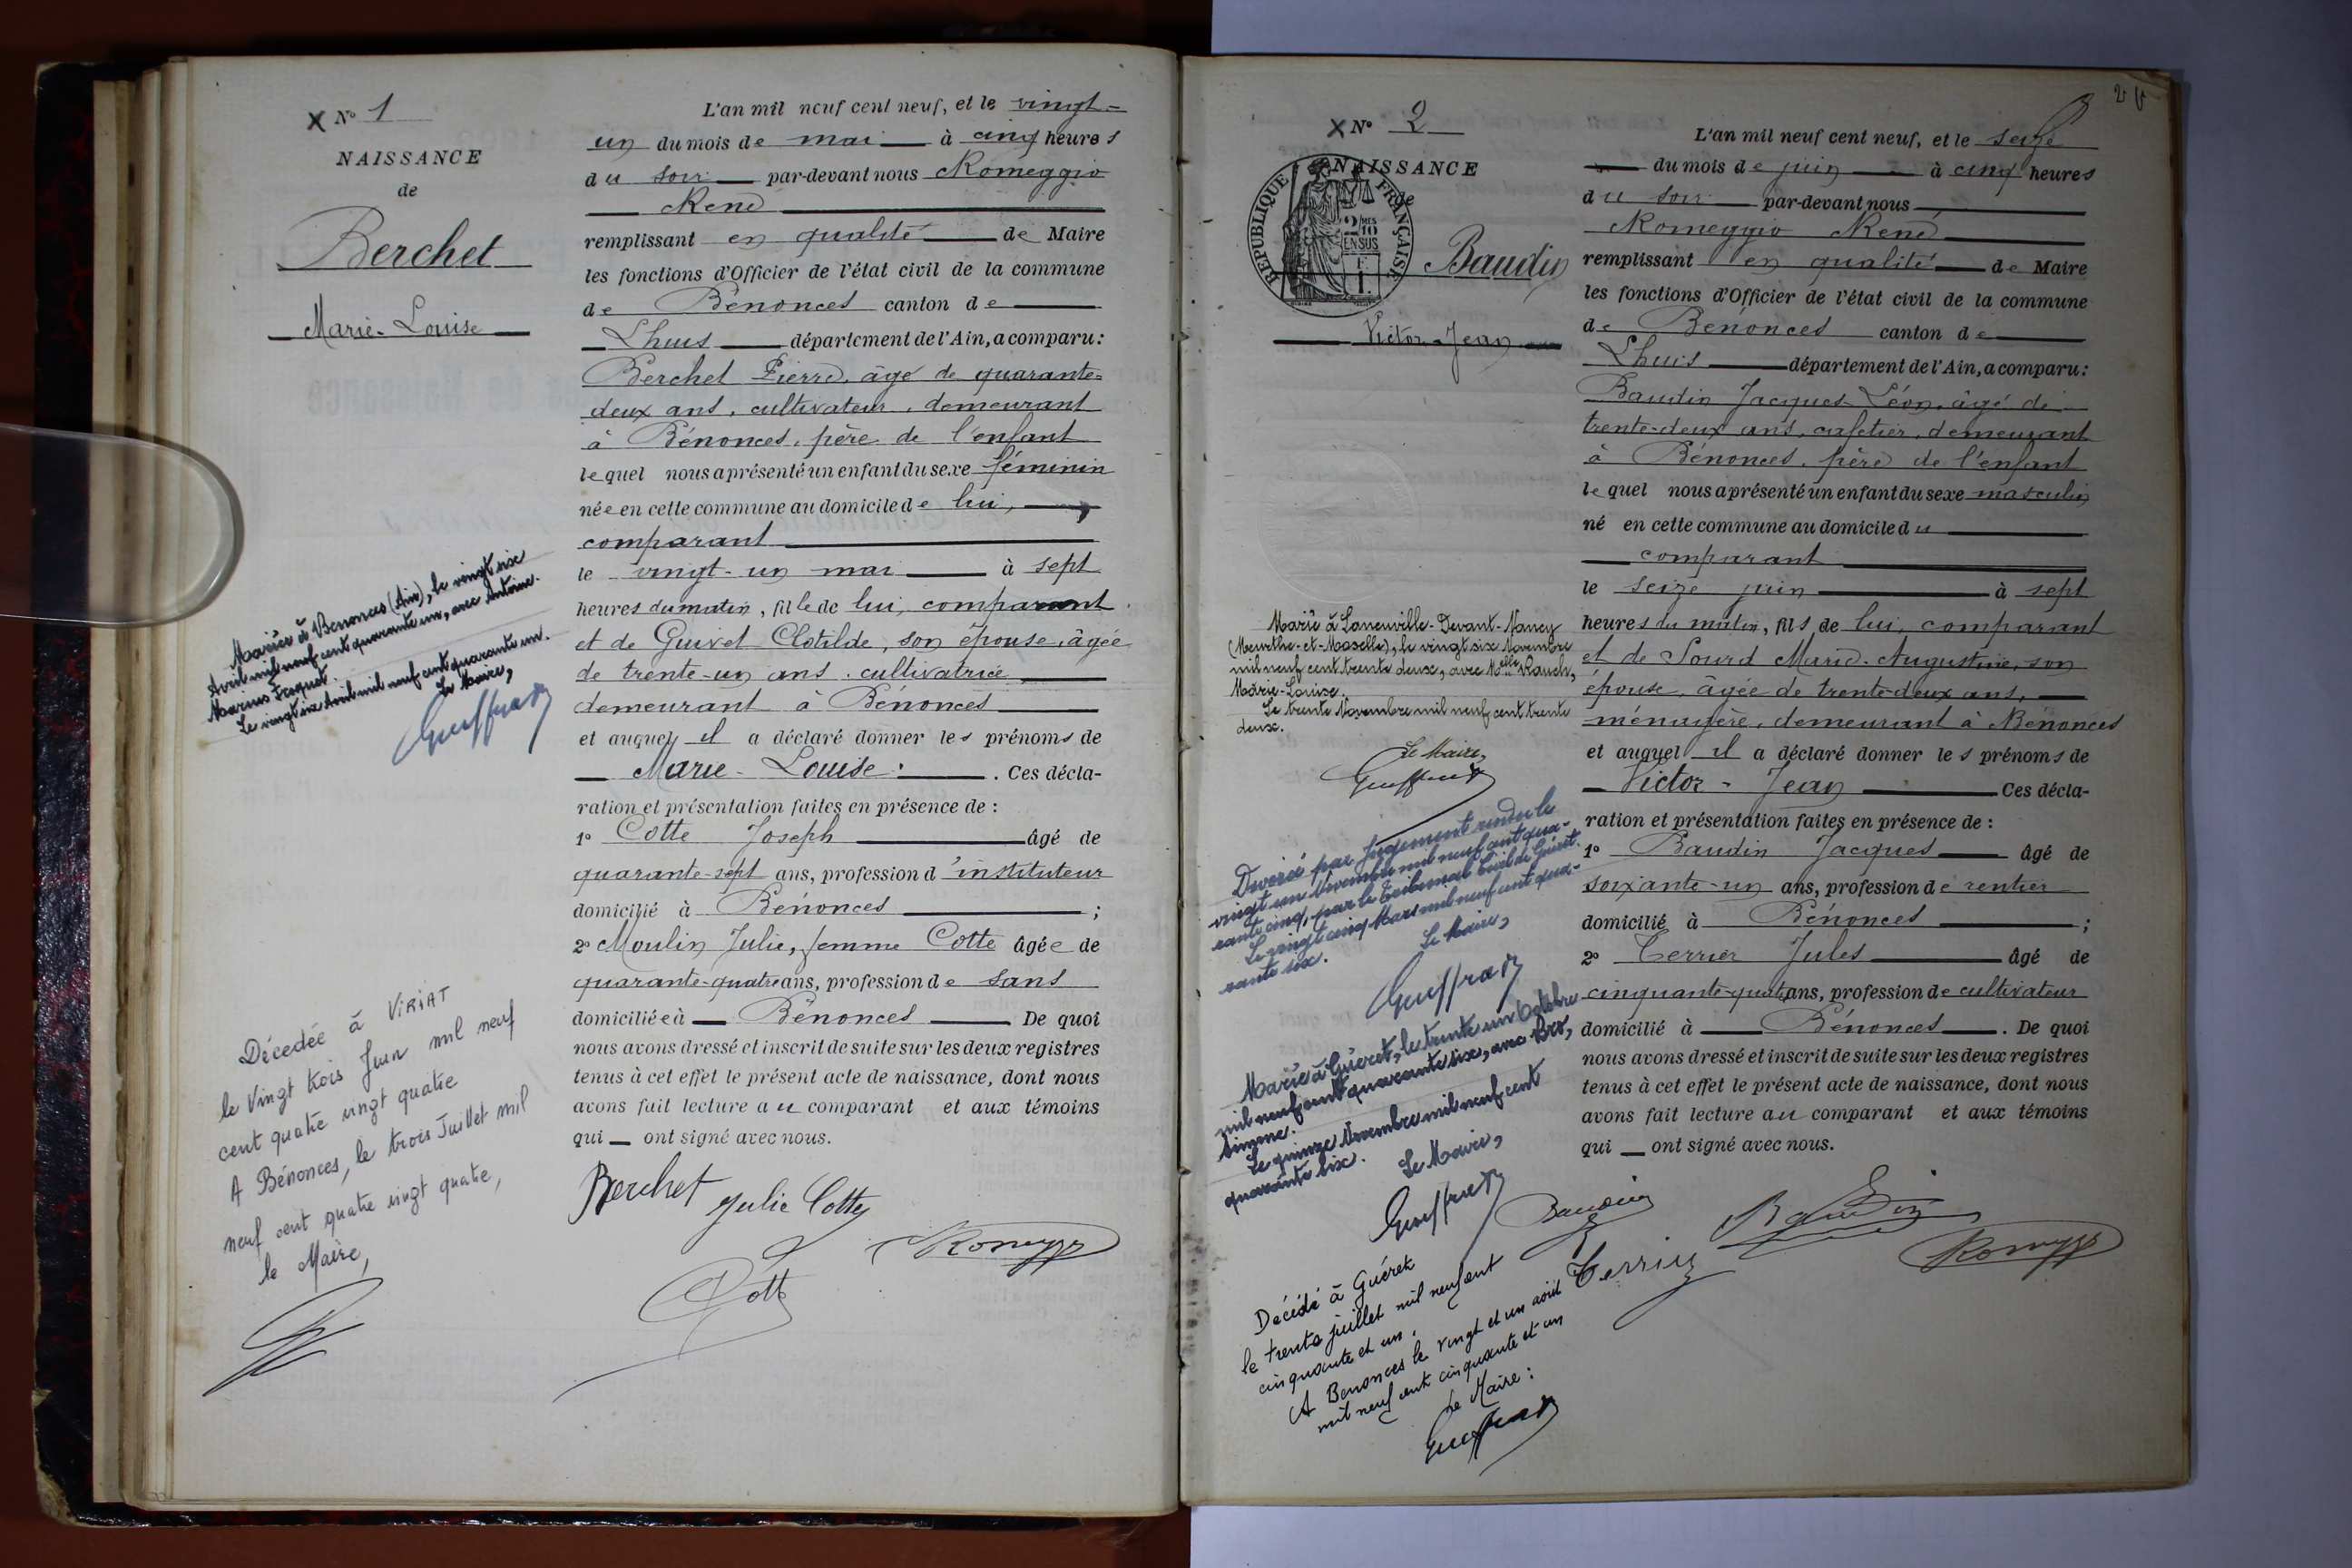 X N° 1
NAISSANCE
de
Berchet
Marie-Louise
L'an mil neuf cent neuf, et le vingt-
un du mois de mai à cinq heures
du soir par-devant nous Romeggio
René
remplissant en qualité de Maire
les fonctions d'Officier de l'état civil de la commune
de Bénonces canton de
Lhuis département de l'Ain, a comparu:
Berchet Pierre, âgé de quarante-
deux ans, cultivateur, demeurant
à Bénonces, père de l'enfant
lequel nous a présenté un enfant du sexe féminin
née en cette commune au domicile de lui,
comparant
le vingt-un mai à sept
heures du matin, fille de lui, comparant
et de Guivet Clotilde, son épouse, âgée
de trente-un ans, cultivatrice
demeurant à Bénonces
et auquel il a déclaré donner les prénoms de
Marie-Louise. Ces décla-
ration et présentation faites en présence de :
1° Cotte Joseph âgé de
quarante-sept ans, profession d'instituteur
domicilié à Bénonces ;
2° Moulin Julie, femme Cotte âgée de
quarante-quatre ans, profession de sans
domiciliée à Bénonces De quoi
nous avons dressé et inscrit de suite sur les deux registres
tenus à cet effet le présent acte de naissance, dont nous
avons fait lecture au comparant et aux témoins
qui ont signé avec nous.
Berchet Julie Cotte
Cotte
Mariée à Bénonces (Ain), le vingt six
Avril mil neuf cent quarante un, avec Antoine
Marius
Le vingt six Avril mil neuf cent quarante un.
Le Maire,
Décédée à VIRIAT
le Vingt trois Juin mil neuf
cent quatre vingt quatre
A Bénonces, le trois Juillet mil
neuf cent quatre vingt quatre,
le Maire,
X N° 2
NAISSANCE
de
REPUBLIQUE FRANÇAISE
2/10 MES
EN SUS
Baudin
Victor-Jean
L'an mil neuf cent neuf, et le seize
du mois de juin à cinq heures
du soir par-devant nous
Romeggio René
remplissant en qualité de Maire
les fonctions d'Officier de l'état civil de la commune
de Bénonces canton de
Lhuis département de l'Ain, a comparu:
Baudin Jacques-Léon, âgé de
trente-deux ans, cafetier, demeurant
à Bénonces, père de l'enfant
lequel nous a présenté un enfant du sexe masculin
né en cette commune au domicile du
comparant
le seize juin à sept
heures du matin, fils de lui, comparant
et de Sourd Marie-Augustine, son
épouse, âgée de trente-deux ans,
ménagère, demeurant à Bénonces
et auquel il a déclaré donner les prénoms de
Victor-Jean Ces décla-
ration et présentation faites en présence de :
1° Baudin Jacques âgé de
soixante-un ans, profession de rentier
domicilié à Bénonces ;
2° Terrier Jules âgé de
cinquante-quatre ans, profession de cultivateur
domicilié à Bénonces. De quoi
nous avons dressé et inscrit de suite sur les deux registres
tenus à cet effet le présent acte de naissance, dont nous
avons fait lecture au comparant et aux témoins
qui ont signé avec nous.
Baudin Baudin
Terrier
Marié à Laneuville-Devant-Nancy
(Meurthe-et-Moselle), le vingt six Novembre
mil neuf cent trente deux, avec Melle Rauch,
Marie-Louise.
Le trente Novembre mil neuf cent trente
deux.
Le Maire,
Divorcé par jugement rendu le
vingt un Novembre mil neuf cent qua-
rante cinq, par le Tribunal Civil de Guéret.
Le vingt cinq Mars mil neuf cent qua-
rante six.
Le Maire,
Marié à Guéret, le trente un Octobre
mil neuf cent quarante six, avec
Le quinze Novembre mil neuf cent
quarante six.
Le Maire,
Décédé à Guéret
le trente juillet mil neuf cent
cinquante et un.
A Benonces le vingt et un août
mil neuf cent cinquante et un
Le Maire :